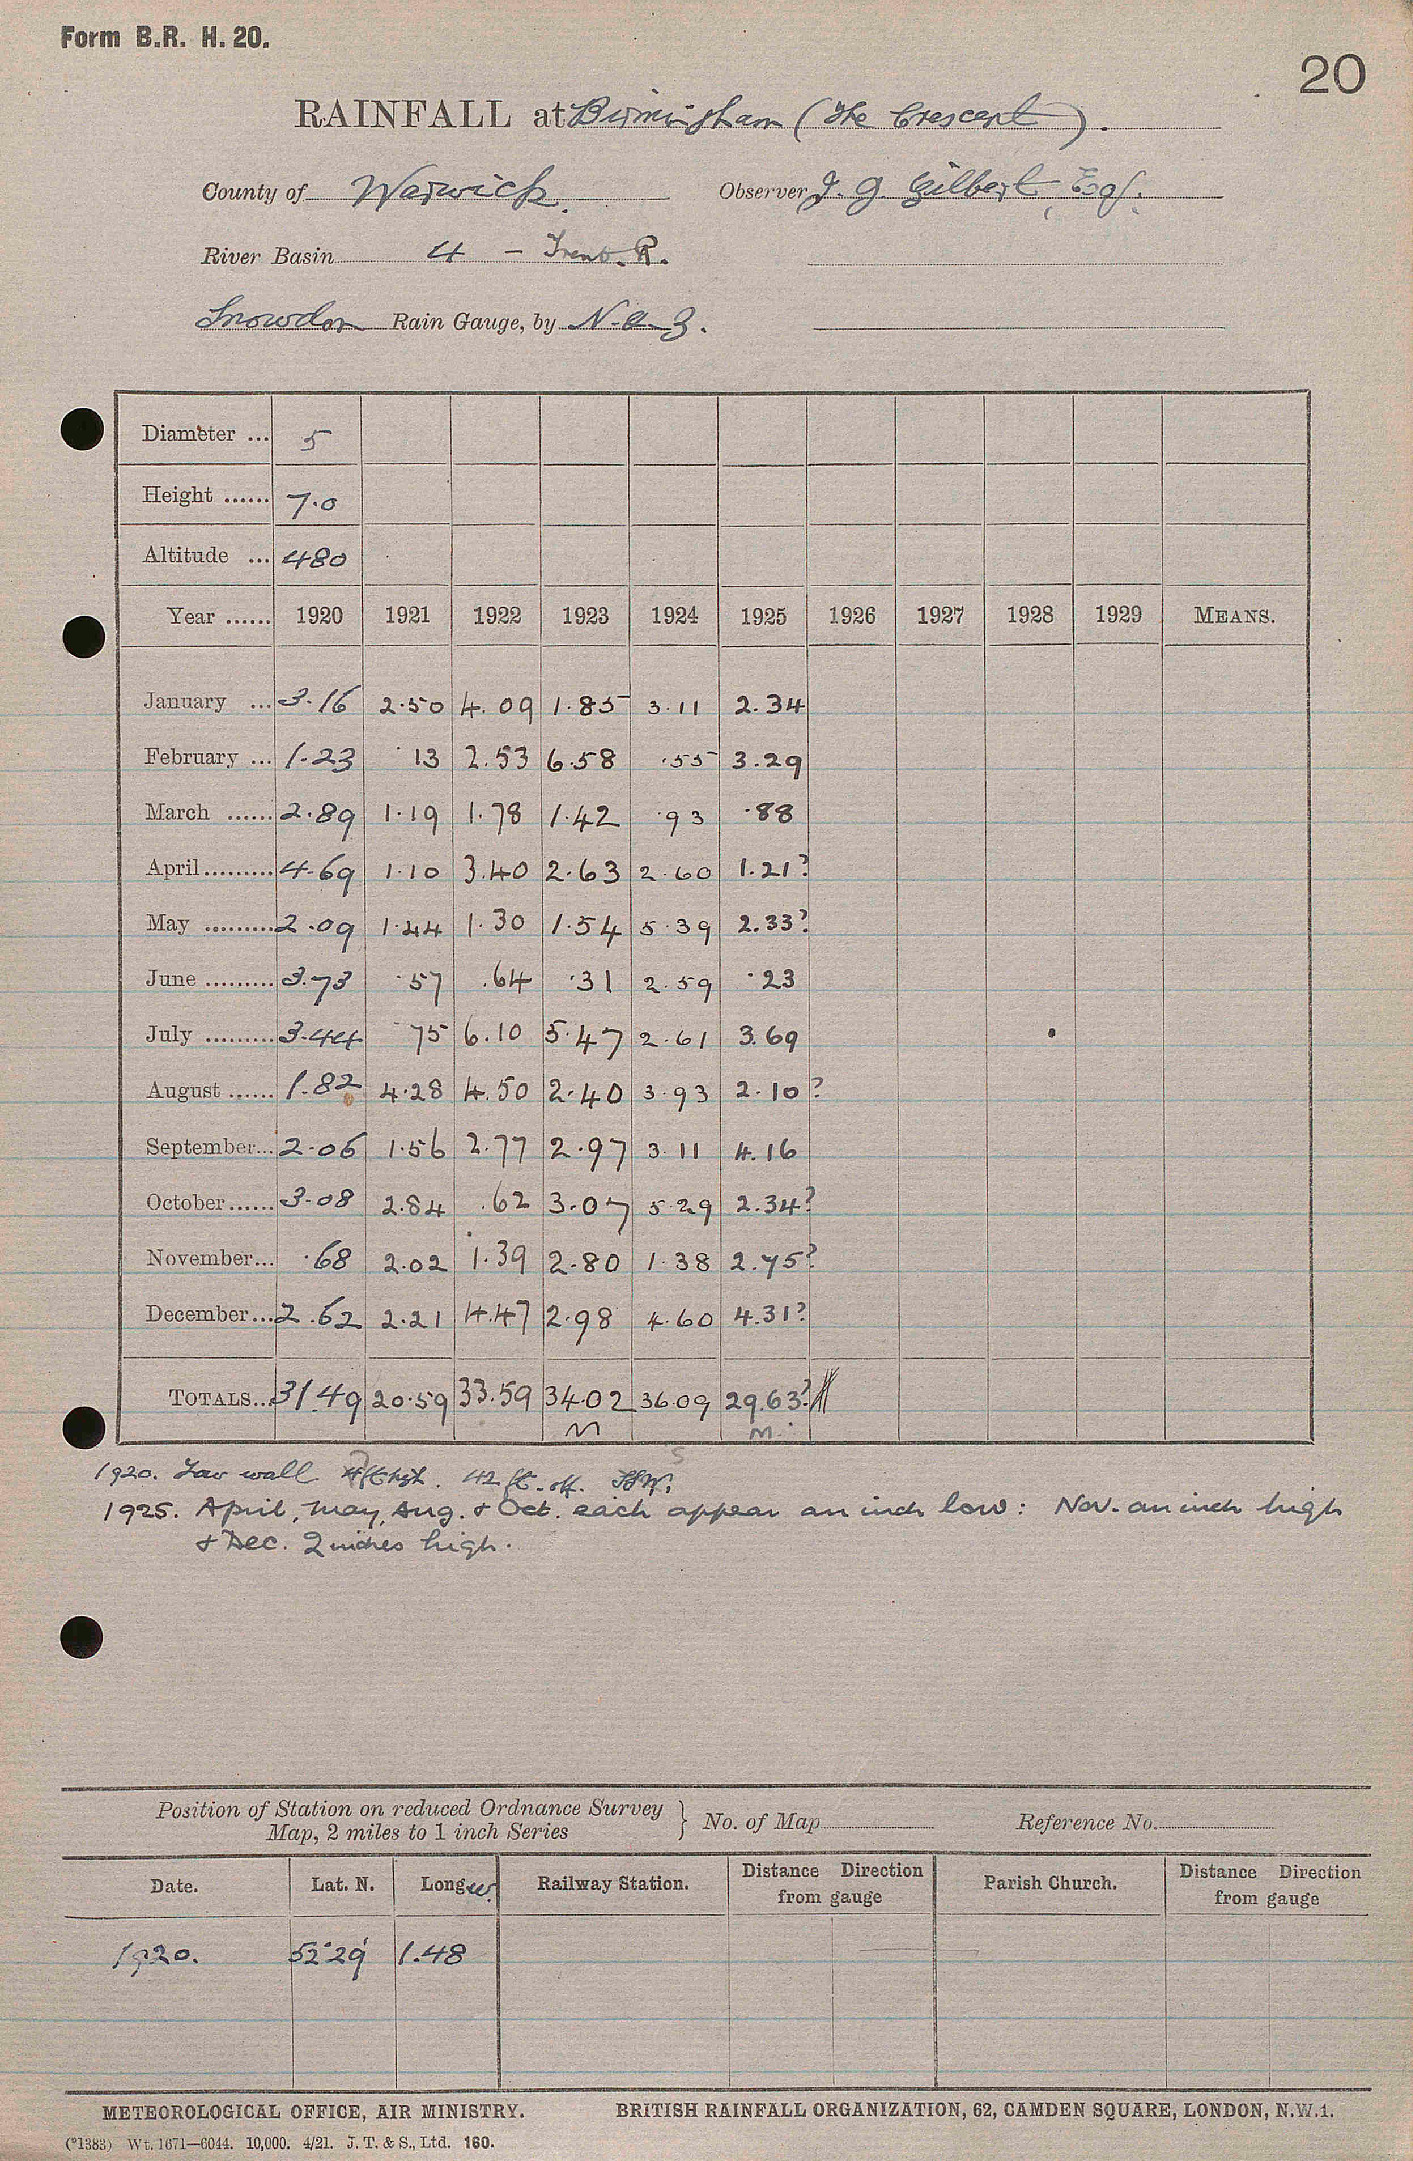 Form B.R. H. 20.
20
RAINFALL at Birmingham (The Crescent).
County of Warwick. Observer J. G. Gilbert, Esq.
River Basin 4 - Trent. R.
Snowdon Rain Gauge, by N. & Z.
Diameter ... 5
Height ...... 7.0
Altitude ... 480
Year ...... 1920 1921 1922 1923 1924 1925 1926 1927 1928 1929 MEANS.
January ... 3.16 2.50 4.09 1.85 3.11 2.34
February ... 1.23 .13 2.53 6.58 .55 3.29
March ...... 2.89 1.19 1.78 1.42 .93 .88
April ......... 4.69 1.10 3.40 2.63 2.60 1.21?
May ......... 2.09 1.44 1.30 1.54 5.39 2.33?
June ......... 3.73 .57 .64 .31 2.59 .23
July ......... 3.44 .75 6.10 5.47 2.61 3.69
August ...... 1.82 4.28 4.50 2.40 3.93 2.10?
September... 2.06 1.56 2.77 2.97 3.11 4.16
October...... 3.08 2.84 .62 3.07 5.29 2.34?
November... .68 2.02 1.39 2.80 1.38 2.75?
December... 2.62 2.21 4.47 2.98 4.60 4.31?
TOTALS... 31.49 20.59 33.59 34.02 36.09 29.63?
M M
1920. Low wall 4ft high. 42 ft. off.
1925. April, May, Aug. & Oct. each appear an inch low: Nov. an inch high
& Dec. 2 inches high.
Position of Station on reduced Ordnance Survey
Map, 2 miles to 1 inch Series } No. of Map Reference No.
Date. Lat. N. Long W. Railway Station. Distance Direction from gauge Parish Church. Distance Direction from gauge
1920. 52°29' 1.48
METEOROLOGICAL OFFICE, AIR MINISTRY. BRITISH RAINFALL ORGANIZATION, 62, CAMDEN SQUARE, LONDON, N.W.1.
(*1383) Wt. 1671—6044. 10,000. 4/21. J. T. & S., Ltd. 160.